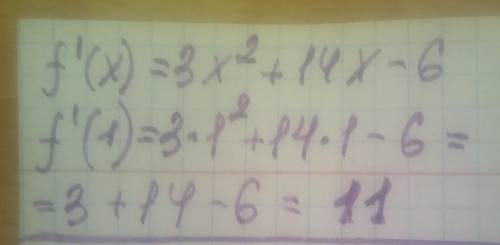 f'(x) = 3x² + 14x - 6
f'(1) = 3·1² + 14·1 - 6 =
= 3 + 14 - 6 = 11